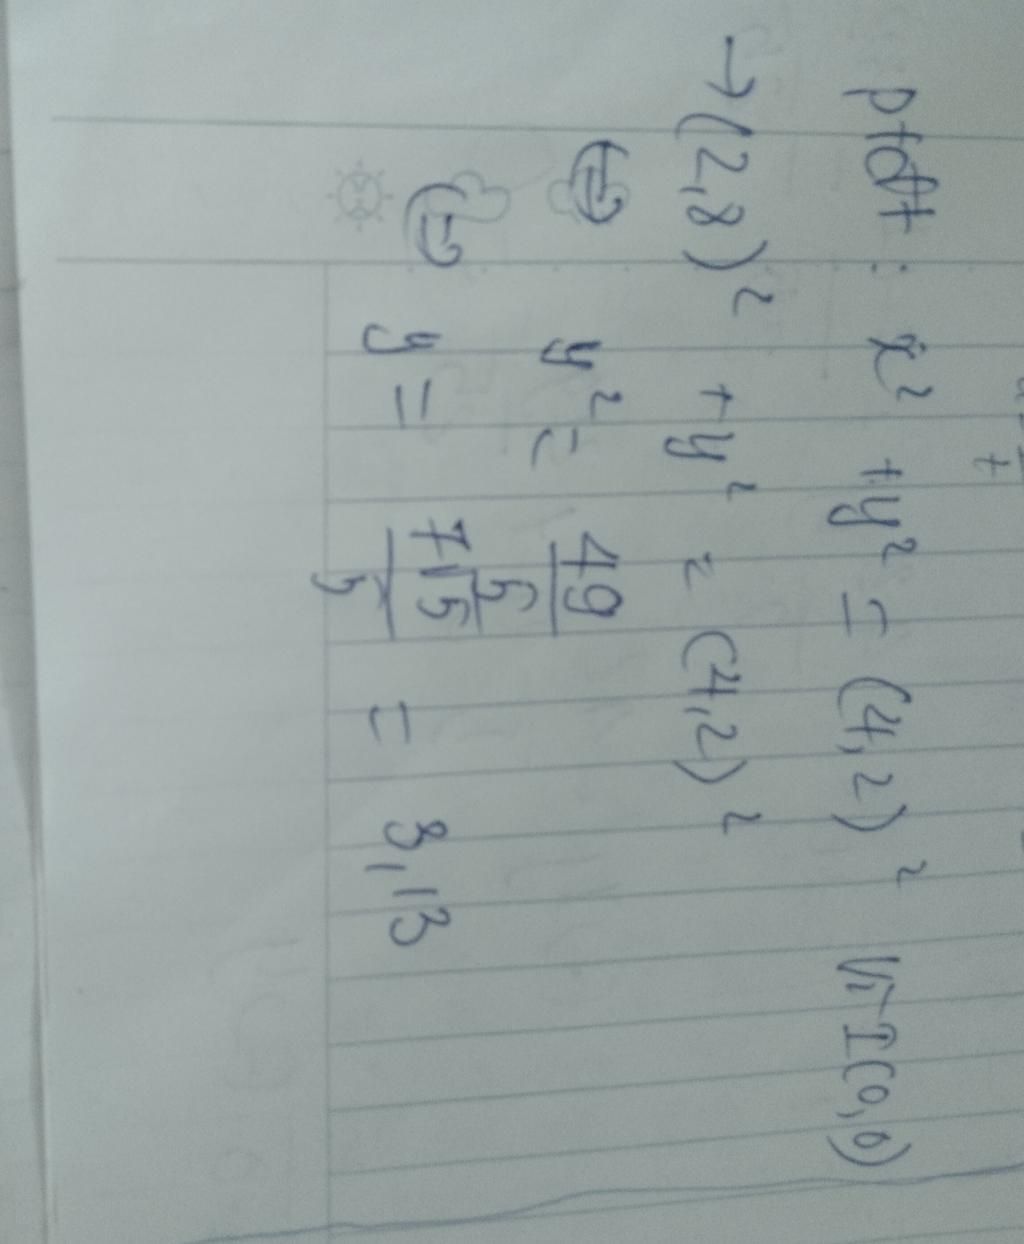 ptđt : x² + y² = (4,2)² Vì I(0,0)
→ (2,8)² + y² = (4,2)²
⇔ y² = 49/5
⇔ y = 7√5/5 = 3,13